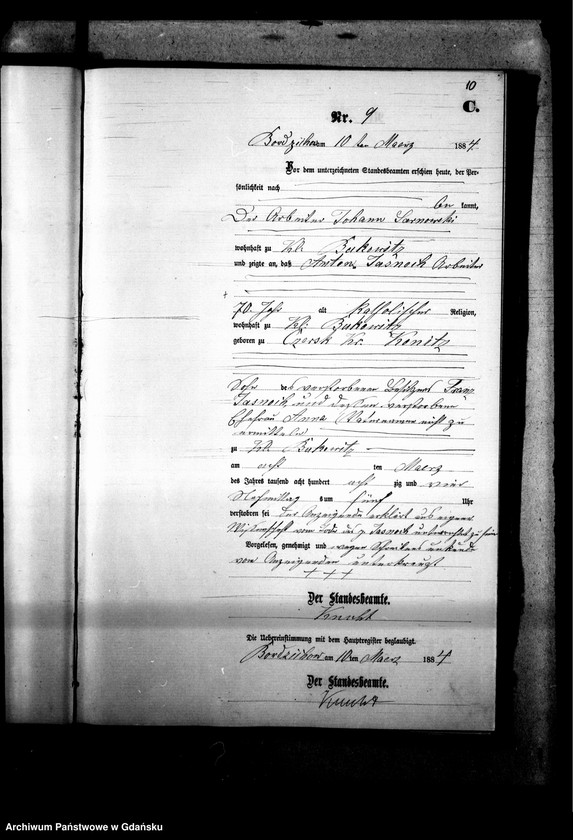 10
C.
Nr. 9
Bordzichow am 10 ten Maerz 1884.
Vor dem unterzeichneten Standesbeamten erschien heute, der Per-
sönlichkeit nach
be kannt,
Der Arbeiter Johann Sarnowski
wohnhaft zu Kl. Bukowitz
und zeigte an, daß Anton Jasnoch Arbeiter
70 Jahr alt katholischer Religion,
wohnhaft zu Kl. Bukowitz
geboren zu Czersk Kr. Konitz
Sohn des verstorbenen Besitzers Franz
Jasnoch und dessen verstorbene
Ehefrau Anna Vatersname nicht zu
ermitteln
zu Kl. Bukowitz
am acht ten Maerz
des Jahres tausend acht hundert acht zig und vier
Nachmittag s um fünf Uhr
verstorben sei Der Anzeigende erklärt aus eigener
Wissenschaft vom Tode des p. Jasnoch unterrichtet zu sein
Vorgelesen, genehmigt und wegen Schreibens unkunde
vom Anzeigenden unterkreuzt
+ + +
Der Standesbeamte.
Die Uebereinstimmung mit dem Hauptregister beglaubigt.
Bordzichow am 10 ten Maerz 1884
Der Standesbeamte.
Archiwum Państwowe w Gdańsku